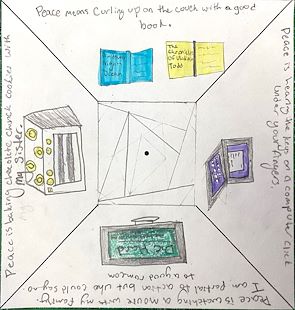 Peace means Curling up on the couch with a good
book.
Peace is hearing the keys on a computer click
under your fingers.
Peace is watching a movie with my family.
I am partial to action but who could say no
to a good romcom
Peace is baking chocolate chunck cookies with
my sister.
The
chronicles
of